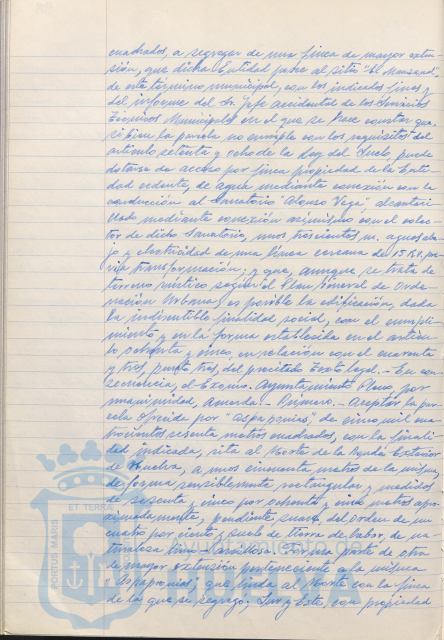 cuadrados, a segregar de una finca de mayor exten-
sión, que dicha Entidad posee al sitio "El Manzano"
de este término municipal, con los indicados fines y
del informe del Sr. Jefe accidental de los Servicios
Técnicos Municipales en el que se hace constar que,
si bien la parcela no cumple con los requisitos del
artículo setenta y ocho de la Ley del Suelo, puede
dotarse de acceso por finca propiedad de la Enti-
dad cedente, de agua mediante conexión con la
conducción al Sanatorio "Alonso Vega", alcantari-
llado mediante conexión asimismo con el colec-
tor de dicho Sanatorio, unos trescientos m. aguas aba-
jo y electricidad de una línea cercana de 15 K.V. pre-
via transformación; y que, aunque se trata de
terreno rústico según el Plan General de Orde-
nación Urbana, es posible la edificación, dada
la indiscutible finalidad social, con el cumpli-
miento y en la forma establecida en el artícu-
lo ochenta y cinco, en relación con el cuarenta
y tres, punto tres, del precitado Texto legal.- En con-
secuencia, el Excmo. Ayuntamiento Pleno, por
unanimidad, acuerda.- Primero.- Aceptar la par-
cela ofrecida por "Aspapronias" de cinco mil cua-
trocientos sesenta metros cuadrados, con la finali-
dad indicada, sita al Norte de la Ronda Exterior
de Huelva, a unos cincuenta metros de la misma,
de forma sensiblemente rectangular y medidas
de sesenta y cinco por ochenta y cinco metros apro-
ximadamente, pendiente suave del orden de un
cuatro por ciento y suelo de tierra de labor, de na-
turaleza limo-arcillosa. Forma parte de otra
de mayor extensión perteneciente a la misma
Aspapronias, que linda al Norte con la finca
de la que se segrega; Sur y Este, con propiedad
ET TERRAE
PORTUS MARIS
HUELVA